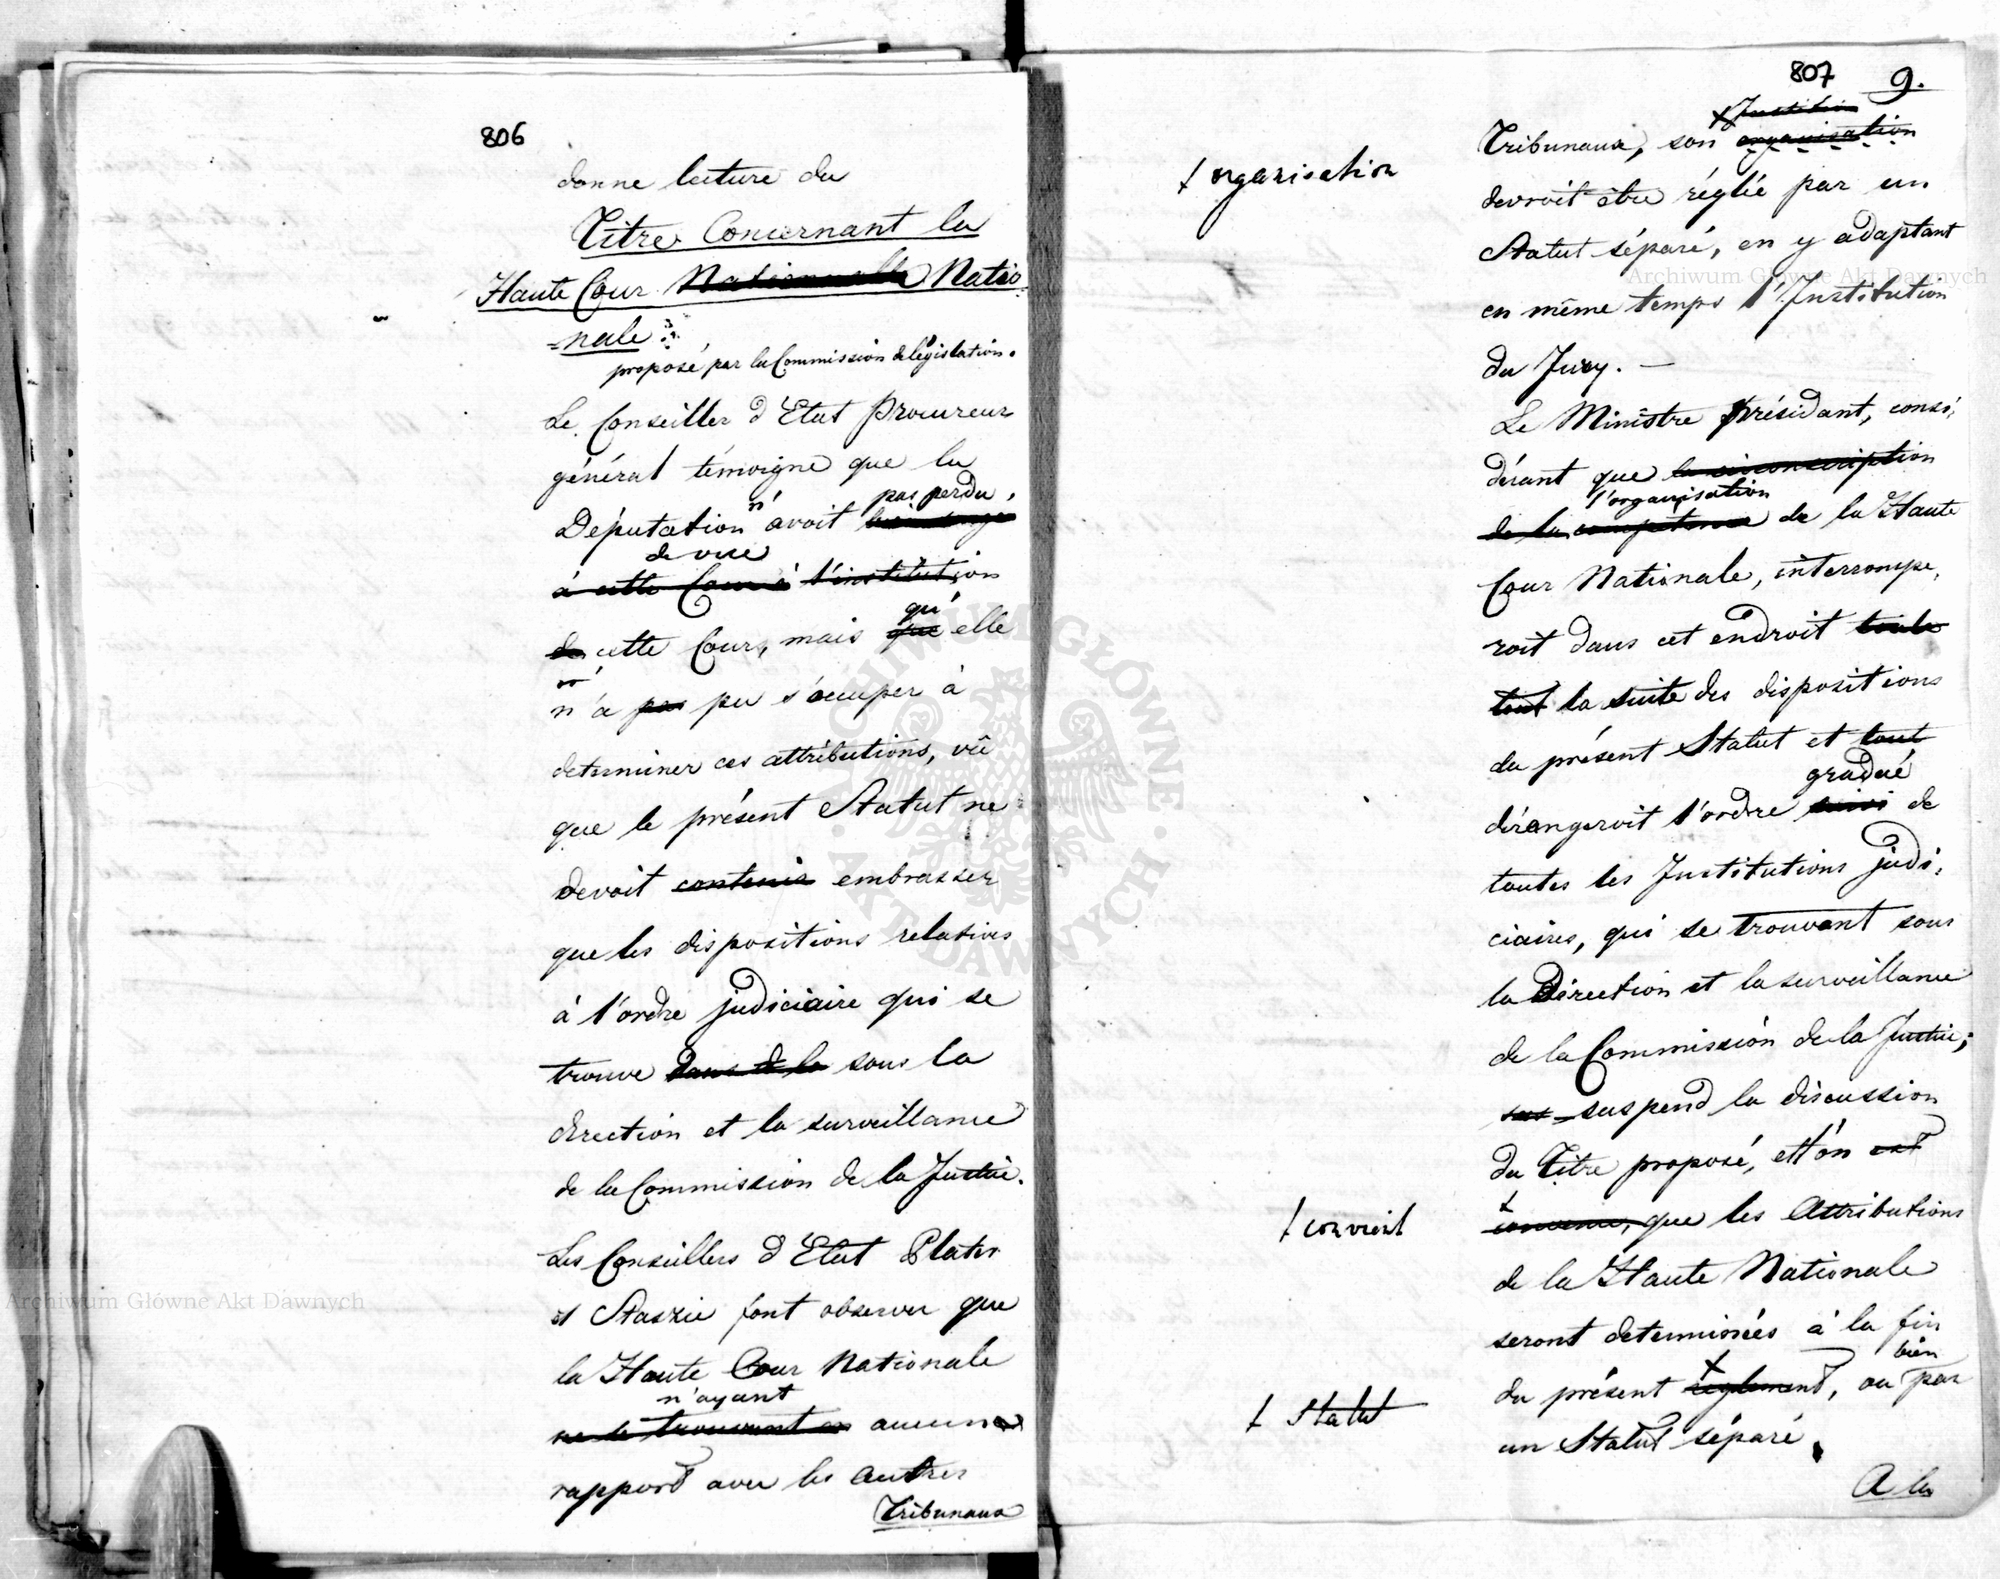 806
donne lecture du
Titre Concernant la
Haute Cour Nationnalle Natio
=nale
proposé par la Commission de législation.
Le Conseiller d'Etat Procureur
général témoigne que la
pas perdu
Députation n'avoit
de vue
à cette Cour à l'institution
qu'
de cette Cour, mais que elle
n'a pas pu s'occuper à
determiner ces attributions, vû
que le présent Statut ne
devoit contenir embrasser
que les dispositions relatives
à l'ordre judiciaire qui se
trouve dans de la sous la
direction et la surveillance
de la Commission de la Justice.
Les Conseillers d'Etat Plater
et Staszic font observer que
la Haute Cour Nationale
n'ayant
ne se trouvant en aucune
rapport avec les autres
Tribunaux
807 9.
Institution
Tribunaux, son organisation
† organisation
devroit être réglée par un
Statut séparé, en y adaptant
en même temps l'Institution
du Jury. —
Le Ministre Présidant, consi,
dérant que la circonscription
l'organisation
de la compétence de la Haute
Cour Nationale, interrompe,
roit dans cet endroit toute
tout la suite des dispositions
du présent Statut et tout
gradué
dérangeroit l'ordre suivi de
toutes les Institutions judi,
ciaires, qui se trouvent sous
la Direction et la surveillance
de la Commission de la Justice;
sus suspend la discussion
du Titre proposé, et l'on est
† convient
convenu, que les Attributions
de la Haute Nationale
seront determinées à la fin
bien
du présent règlement, ou par
† Statut
un Statut séparé.
A la
Archiwum Główne Akt Dawnych
Archiwum Główne Akt Dawnych
ARCHIWUM GŁÓWNE · AKT DAWNYCH ·